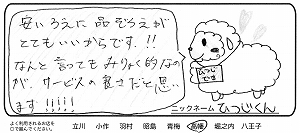 安いうえに品ぞろえが
とてもいいからです。!!
なんと言ってもみりょく的なの
が、サービスの良さだと思い
ます!!!!!
ひつじ
です
ニックネーム ひつじくん
よく利用されるお店を
○で囲んでください。
立川 小作 羽村 昭島 青梅 高幡 堀之内 八王子